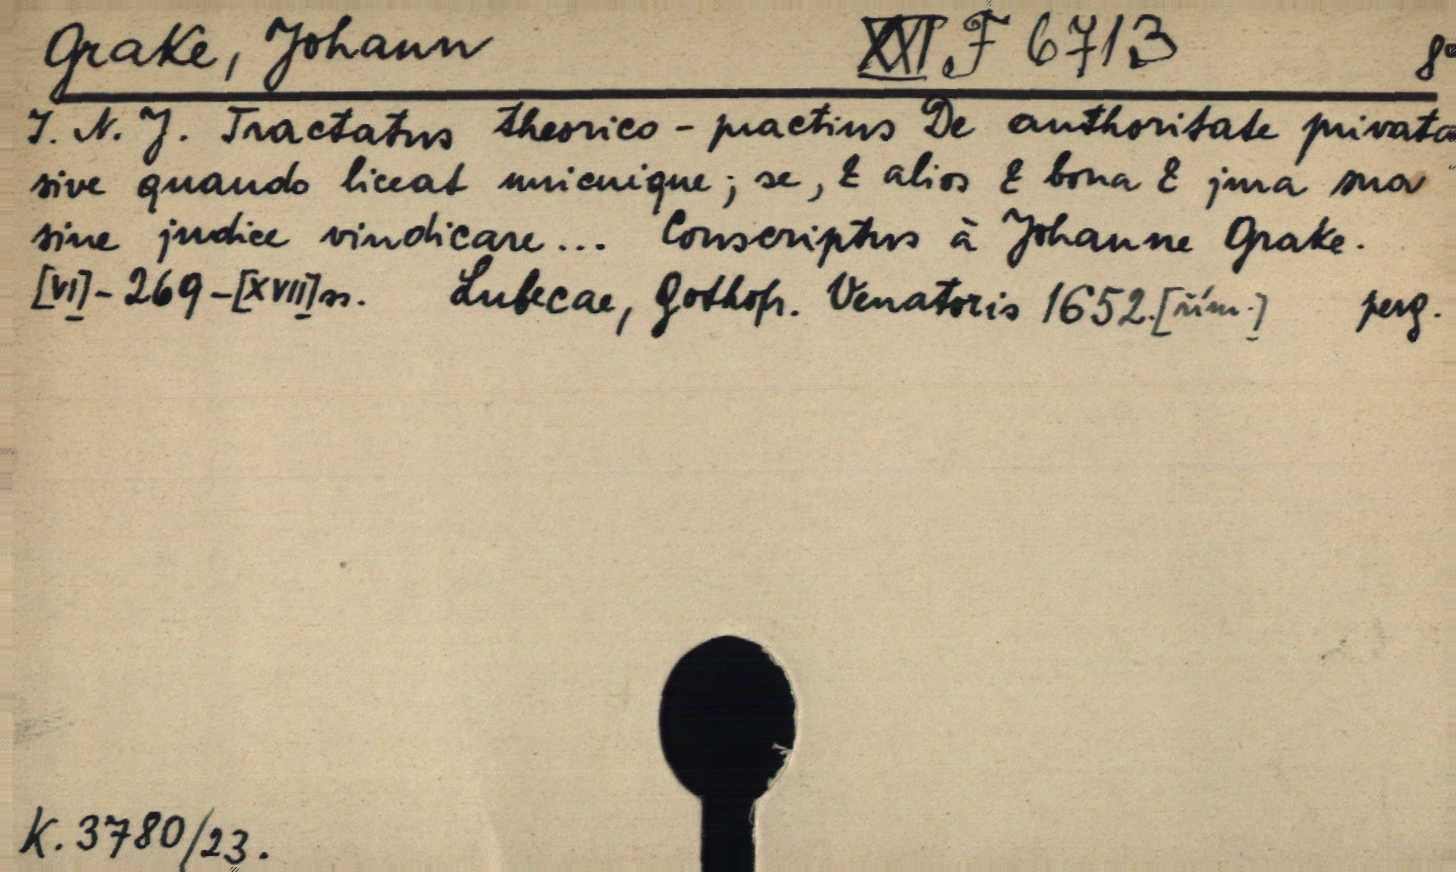 Grake, Johann XXI F 6713 8°
I. N. J. Tractatus theorico-practius De authoritate privata
sive quando liceat unicuique; se, & alios & bona & jura sua
sine judice vindicare... Conscriptus à Johanne Grake.
[VI]-269-[XVII]ss. Lubecae, Gothofr. Venatoris 1652.[řím.] perg.
K. 3780/23.